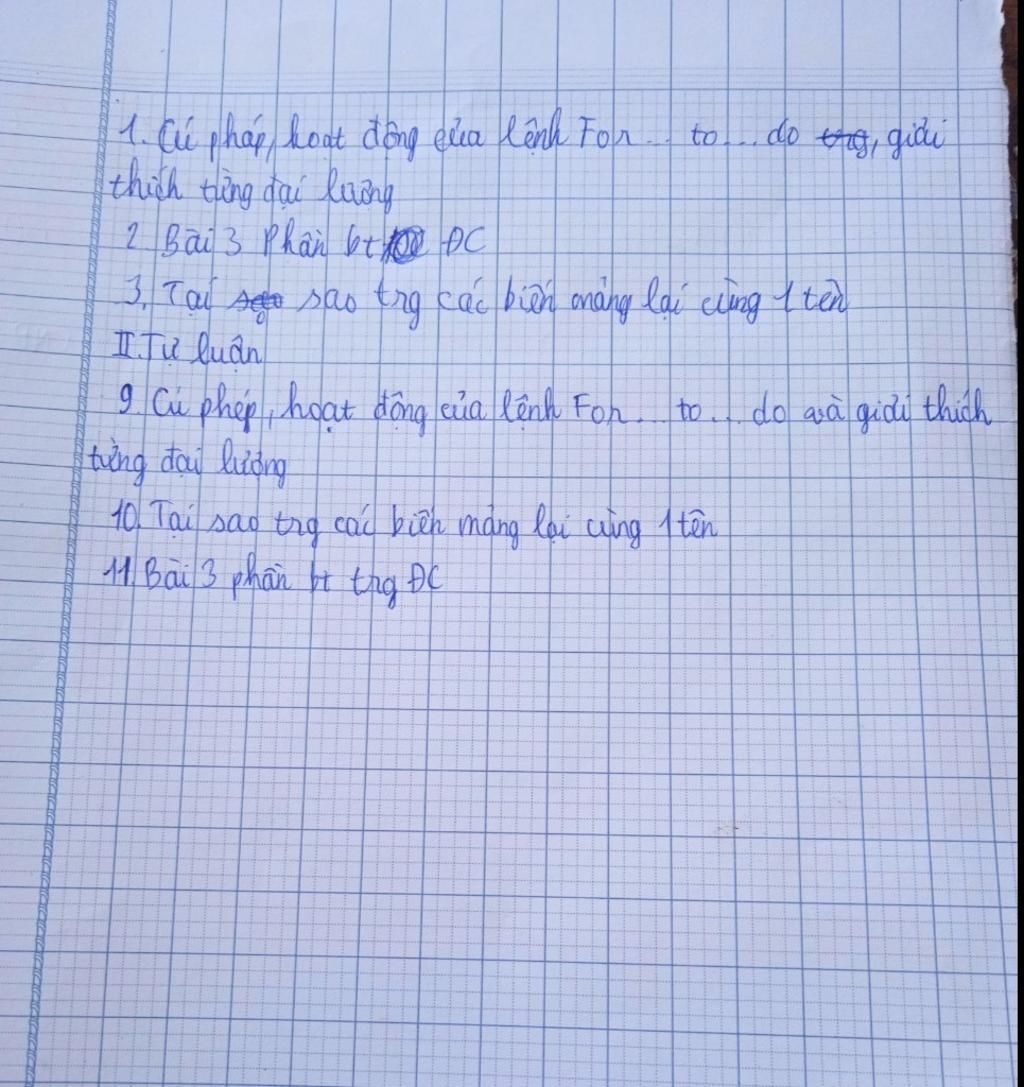 1. Cú pháp, hoạt động của lệnh For... to... do trg, giải
thích từng đại lượng
2. Bài 3 Phần bt ĐC
3. Tại sao trg các biến mảng lại cùng 1 tên
II. Tự luận
9. Cú phép, hoạt động của lệnh For... to... do và giải thích
từng đại lượng
10. Tại sao trg các biến mảng lại cùng 1 tên
11. Bài 3 phần bt trg ĐC